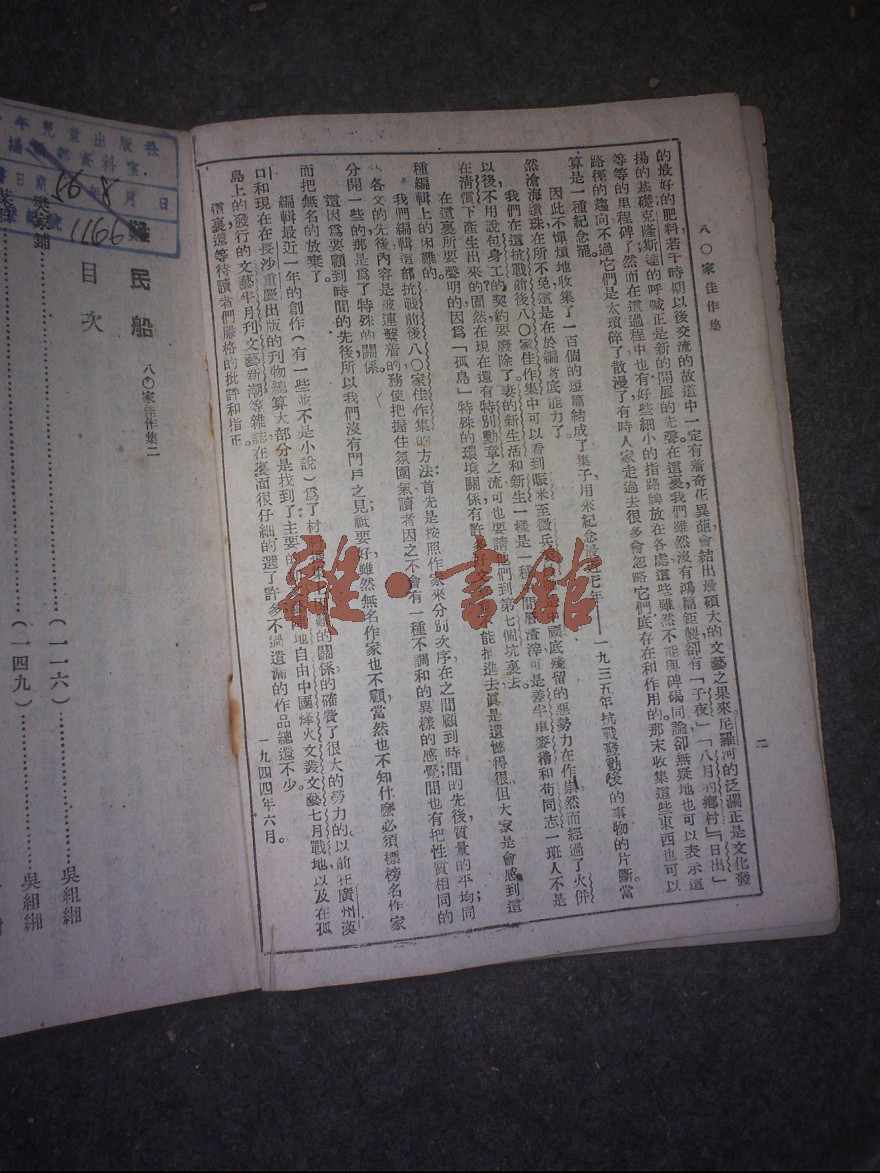 八〇家佳作集
二
的最好的肥料若干時期以後交流的故道中一定有着奇花異葩會結出最碩大的文藝之果來尼羅河的泛瀾正是文化發
揚的基礎克隆斯達的呼喊正是新的開展的先聲在這裏我們雖然沒有鴻篇鉅製卻有「子夜」「八月的鄉村」「日出」
等等的里程碑了然而在這過程中也有好些細小的指路牌放在各處這些雖然不能與碑碣同論卻無疑地也可以表示這
路徑的趨向不過它們是太瑣碎了散漫了有時人家走過去很多會忽略它們底存在和作用的那末收集這些東西也可以
算是一種紀念罷。
因此不憚煩地收集了一百個的短篇結成了集子用來紀念最近元年——一九三五年抗戰發動後的事物的片斷。當
然滄海遺珠在所不免這是在於編者底能力了。
我們在這抗戰前後八〇家佳作集中可以看到賑米至微兵 國底殘留的惡勢力在作祟然而經過了火併
以後不用說包身工的契約要廢除了。妻的新生活和新生一樣是一種 間曆渣滓可是差半車麥稭和荀同志一班人不是
在清償下產生出來的固然在現在還有特別勳章之流可也要請他們到第七個坑裏去。
在這裏所要聲明的因爲「孤島」特殊的環境關係有許多好文 能插進去眞是遺憾得很。但大家是會感到這
種編輯上的困難的。
我們編輯這部抗戰前後八〇家佳作集的方法：首先是按照作家來分別次序，在之間顧到時間的先後，質量的平均同
各文的先後內容是被連繫着的務使把握住氛圍氣讀者因之不會有一種不調和的異樣的感覺間也有把性質相同的
分開一些的那是爲了特殊的關係。
這因爲要顧到時間的先後所以我們沒有門戶之見祇要好雖然無名作家也不顧當然也不知什麼必須標榜名作家
而把無名的放棄了。
編輯最近一年的創作（有一些並不是小說）爲了材料 難的關係的確費了很大的勞力的。以前在廣州漢
口和現在在長沙重慶出版的刊物總算大部分是找到了主要的 地自由中國烽火文叢文藝七月戰地以及在孤
島上的發行的文藝半月刊文藝新潮等雜誌在裏面很仔細的選了許多不過遺漏的作品總還不少。
這裏還等待讀者們嚴格的批評和指正。
一九四四年六月。
難民船 八〇家佳作集二
目次
樊家鋪
（一一六）
吳組緗
（一四九）
吳組緗
年兒童出版社
資料室
日期 56年8月 日
1166
雜·書館